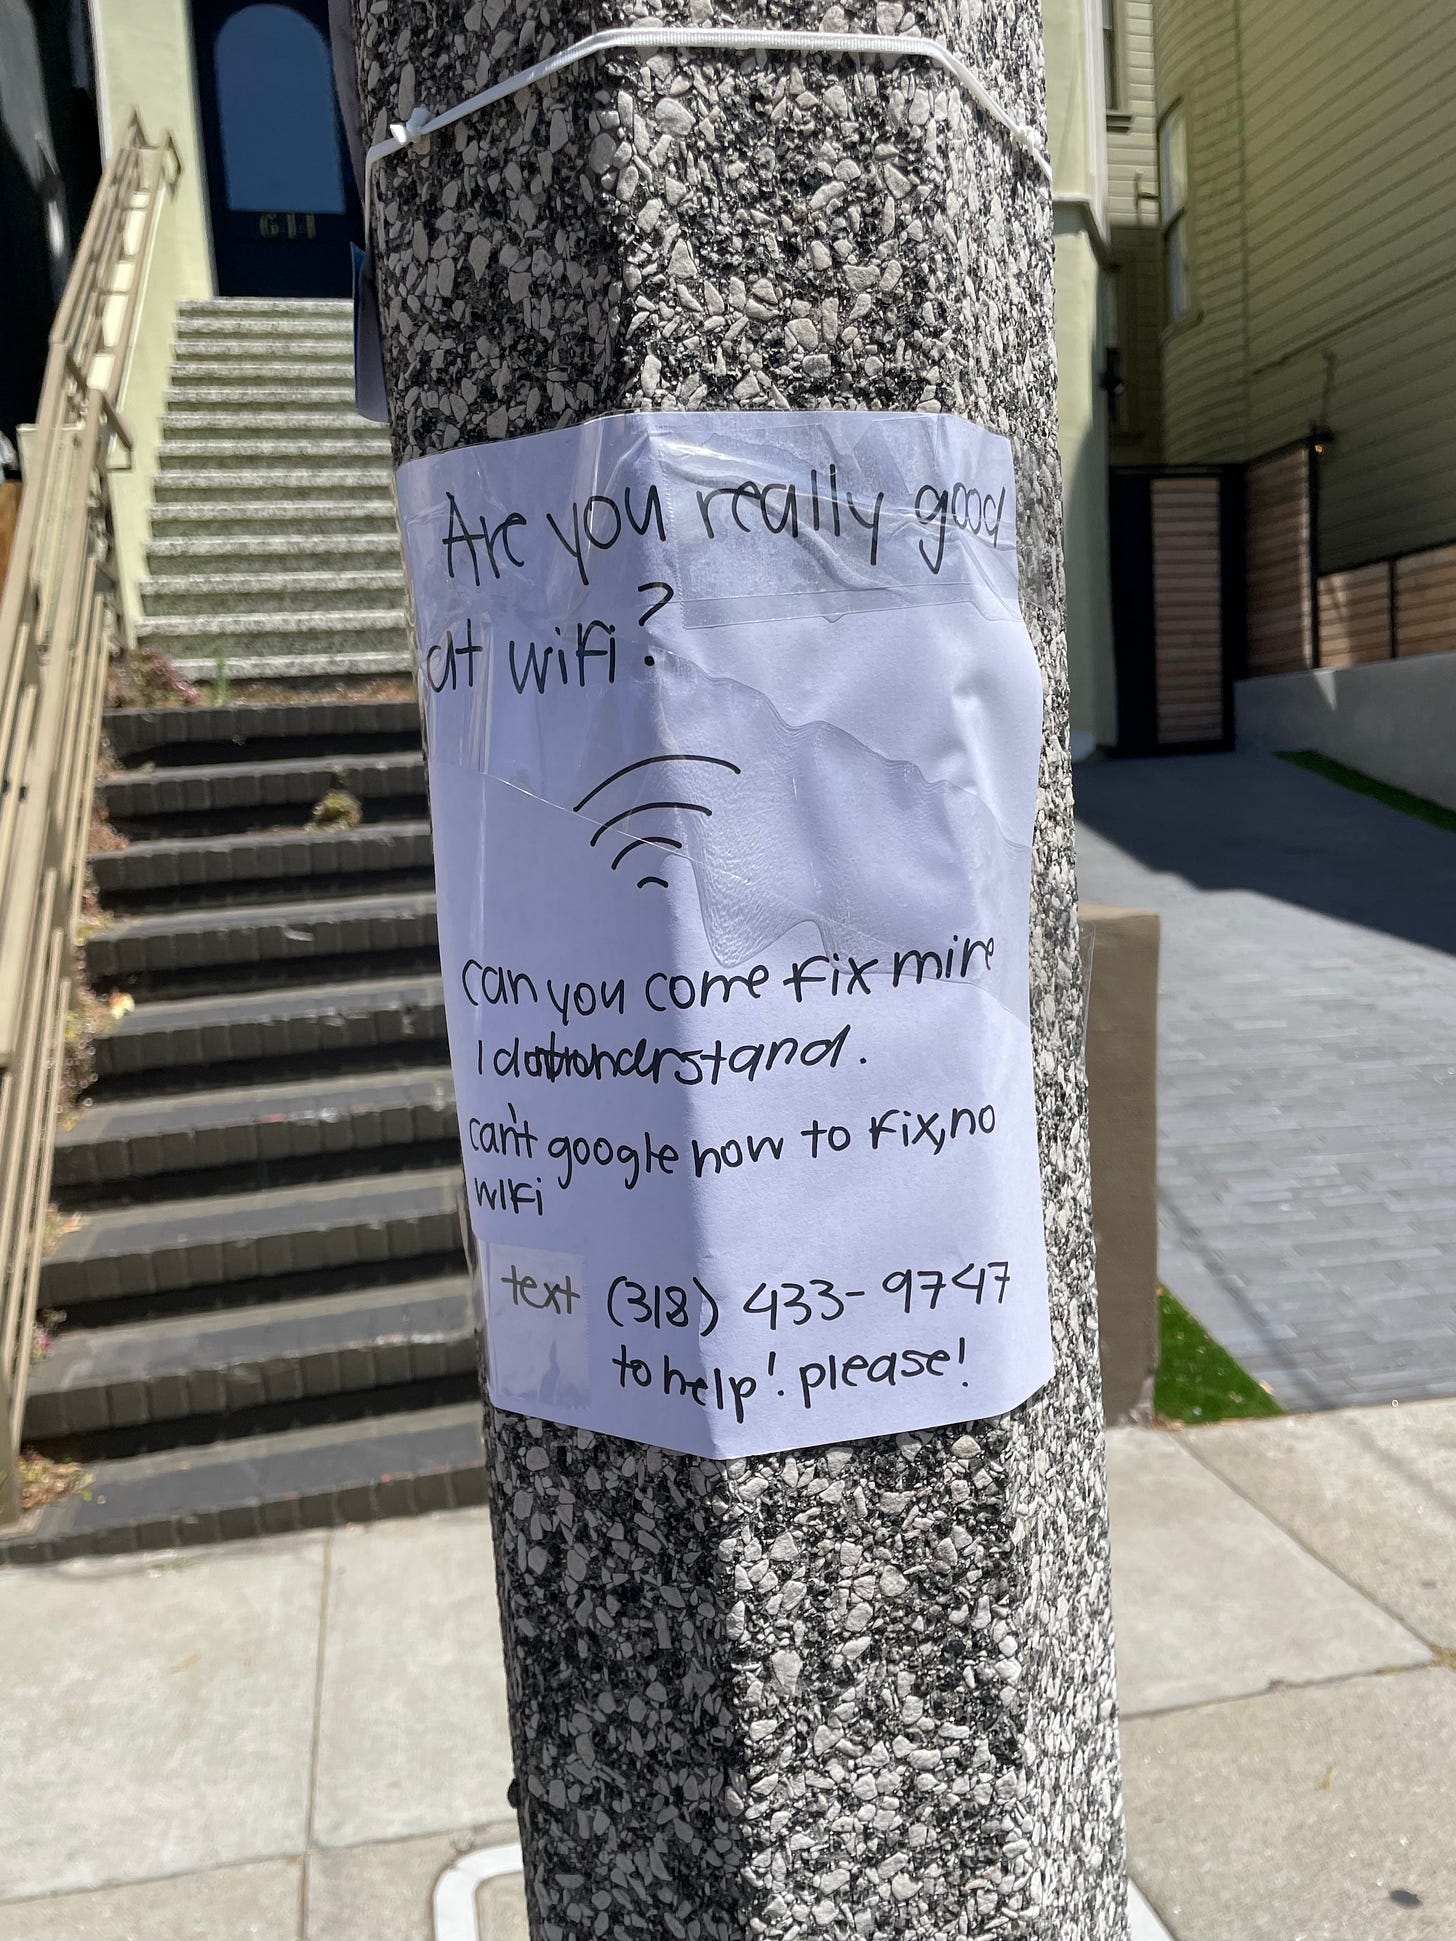 611
Are you really good
at wifi?
can you come fix mine
I understand.
can't google how to fix, no
wifi
text (318) 433-9747
to help! please!